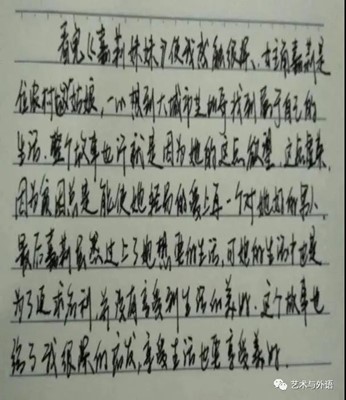 看完《嘉莉妹妹》使我感触很深、女主角嘉莉是
位农村的姑娘，一心想到大城市里能寻找到属于自己的
生活。整个故事也许就是因为她的这层欲望，这点追求，
因为贫困总是能使她轻易的爱上每一个对她好的男人
最后嘉莉虽然过上了她想要的生活，可她的生活中也是
为了追求名利，并没有享受到生活的美好。这个故事也
给了我很深的启发，享受生活也要享受美好。
艺术与外语